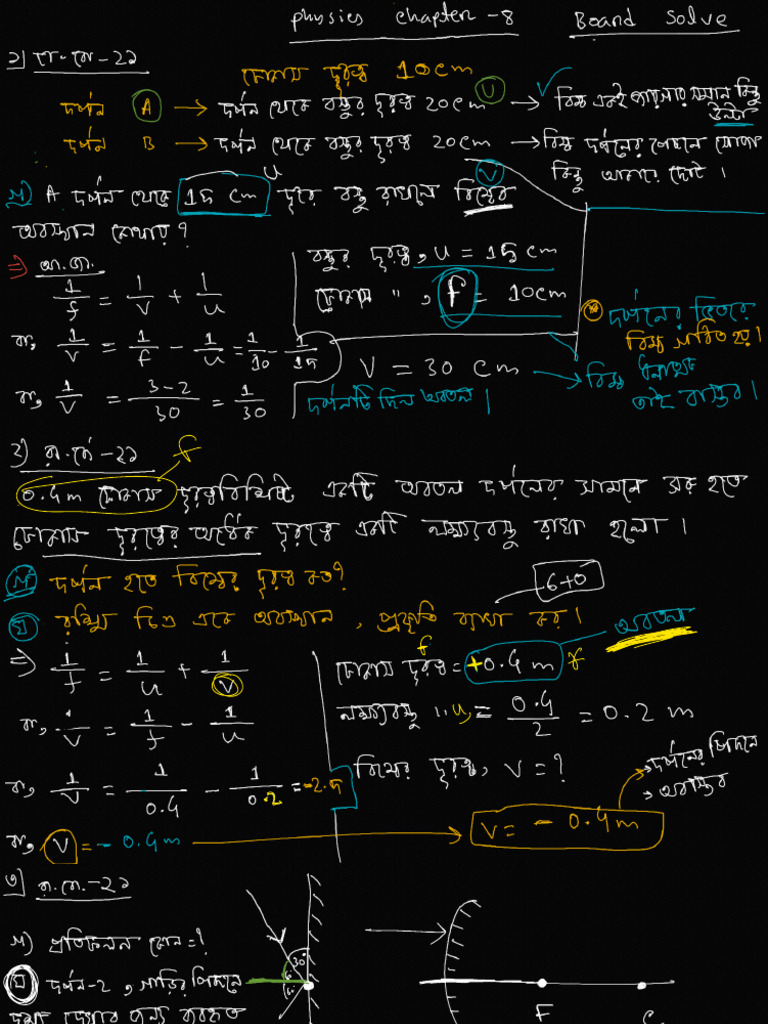 physics chapter -8 Board Solve
ফোকাস দূরত্ব 10cm
দর্পন A → দর্পন থেকে বস্তুর দূরত্ব 20cm → বিম্ব একই জায়গায় সমান কিন্তু উলটা
U
দর্পন B → দর্পন থেকে বস্তুর দূরত্ব 20cm → বিম্ব দর্পনের পেছনে সোজা
কিন্তু আকারে ছোট।
u V
গ) A দর্পন থেকে 15 cm দূরে বস্তু রাখলে বিম্বের
অবস্থান কোথায়?
⇒ আ.জা.
1/f = 1/v + 1/u
বা, 1/v = 1/f - 1/u = 1/10 - 1/15
বা, 1/v = 3-2/30 = 1/30
বস্তুর দূরত্ব, u = 15 cm
ফোকাস ", f = 10cm
V = 30 cm → বিম্ব ধনাত্মক
তাই বাস্তব।
দর্পনটি ছিল অবতল।
দর্পনের ভিতরে
বিম্ব গঠিত হয়।
২) রা.বো-22
f
0.4m ফোকাস দূরত্ববিশিষ্ট একটি অবতল দর্পনের সামনে মেরু হতে
ফোকাস দূরত্বের অর্ধেক দূরত্বে একটি লক্ষ্যবস্তু রাখা হলো।
গ) দর্পন হতে বিম্বের দূরত্ব কত?
ঘ) রশ্মি চিত্র একে অবস্থান, প্রকৃতি ব্যাখা কর।
⇒ 1/f = 1/u + 1/v
বা, 1/v = 1/f - 1/u
বা, 1/v = 1/0.4 - 1/0.2 = -2.5
বা, V = - 0.4m → V = - 0.4m
f
ফোকাস দূরত্ব = +0.4m f অবতল
লক্ষ্যবস্তু " u, = 0.4/2 = 0.2 m
বিম্বের দূরত্ব, v = ?
→ দর্পনের পিছনে
→ অবাস্তব
৩) রা.বো.-22
গ) প্রতিফলন কোন = ?
ঘ) দর্পন-2, গাড়ির পিছনে
দৃশ্য দেখার জন্য ব্যবহৃত
30°
60°
F C